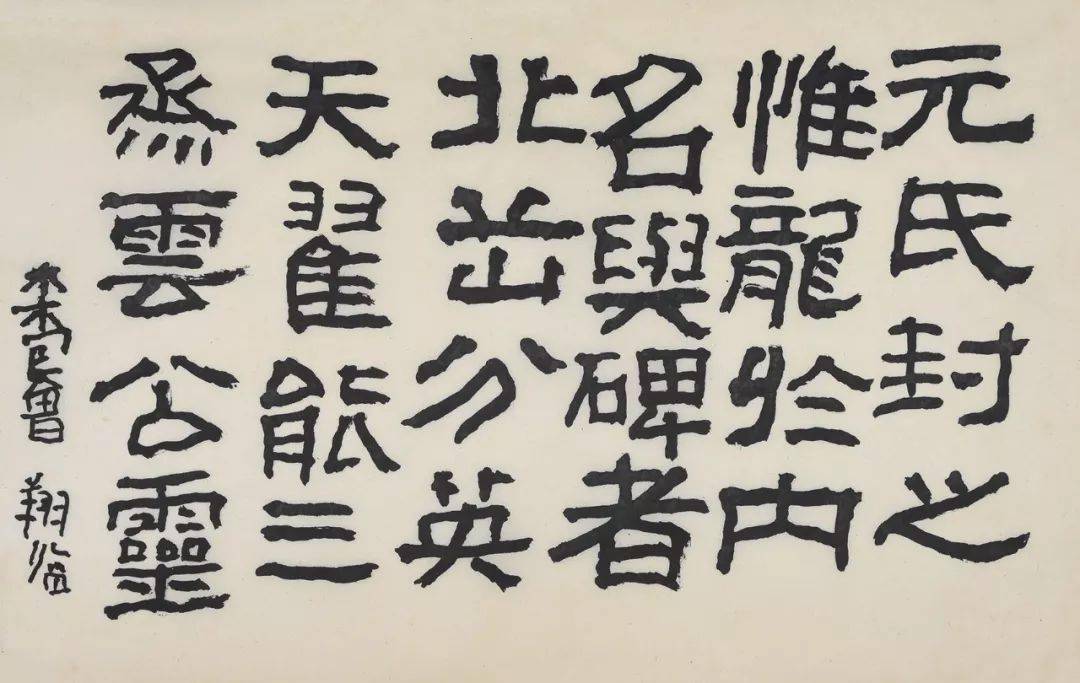 元氏封之
惟龍於内
名與碑者
北岳分英
天翟能三
烝雲公靈
曾翔临